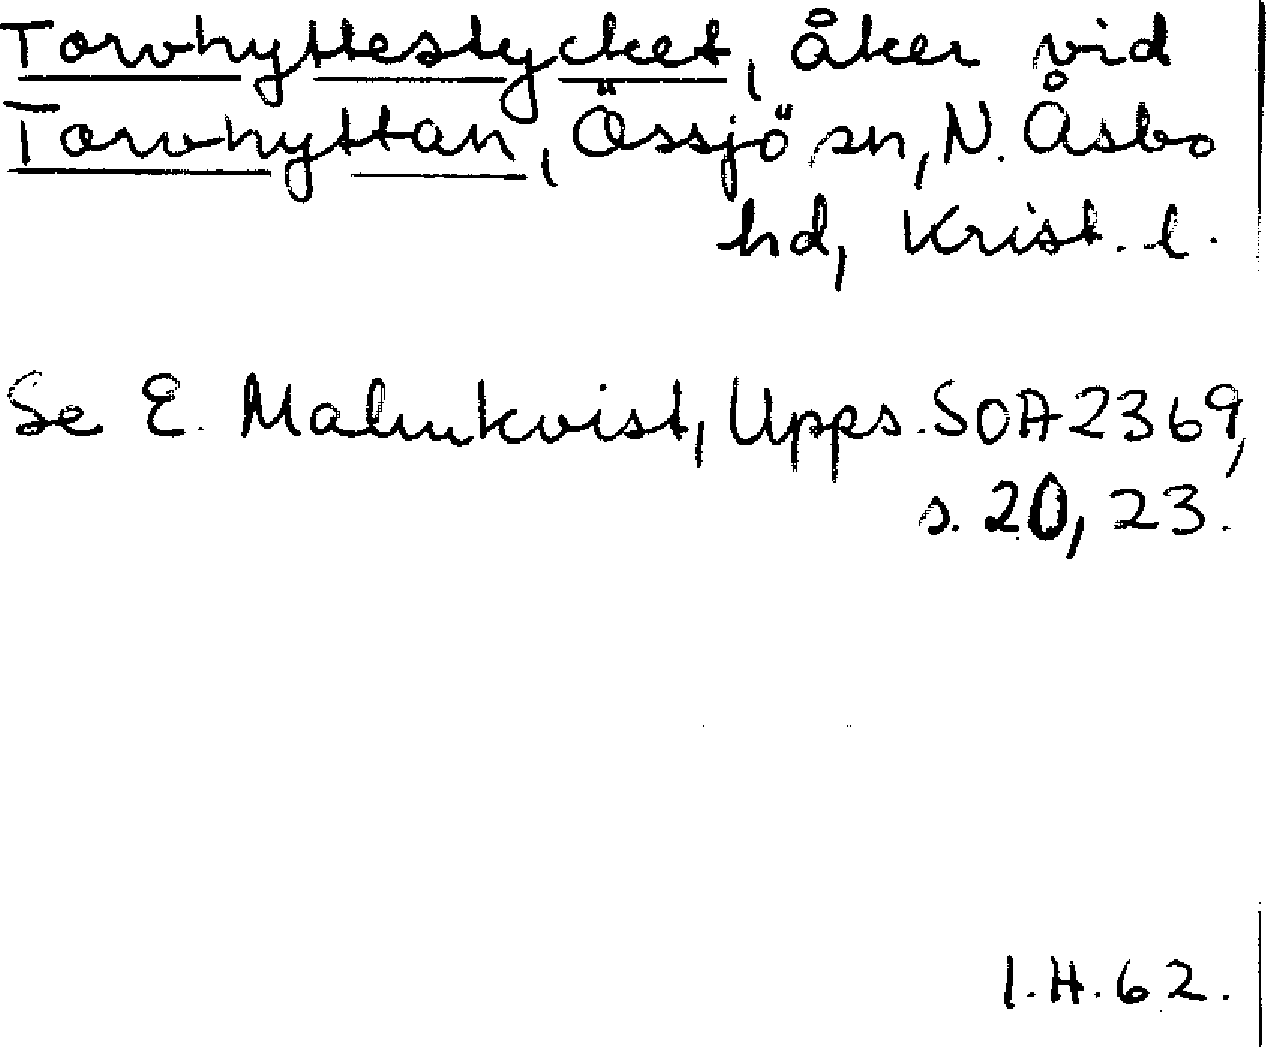 Torvhyttestycket, åker vid
Torvhyttan, Össjö sn, N. Åsbo
hd, Krist. l.
Se E. Malmkvist, Upps. SOA 2369,
s. 20, 23.
I.H. 62.